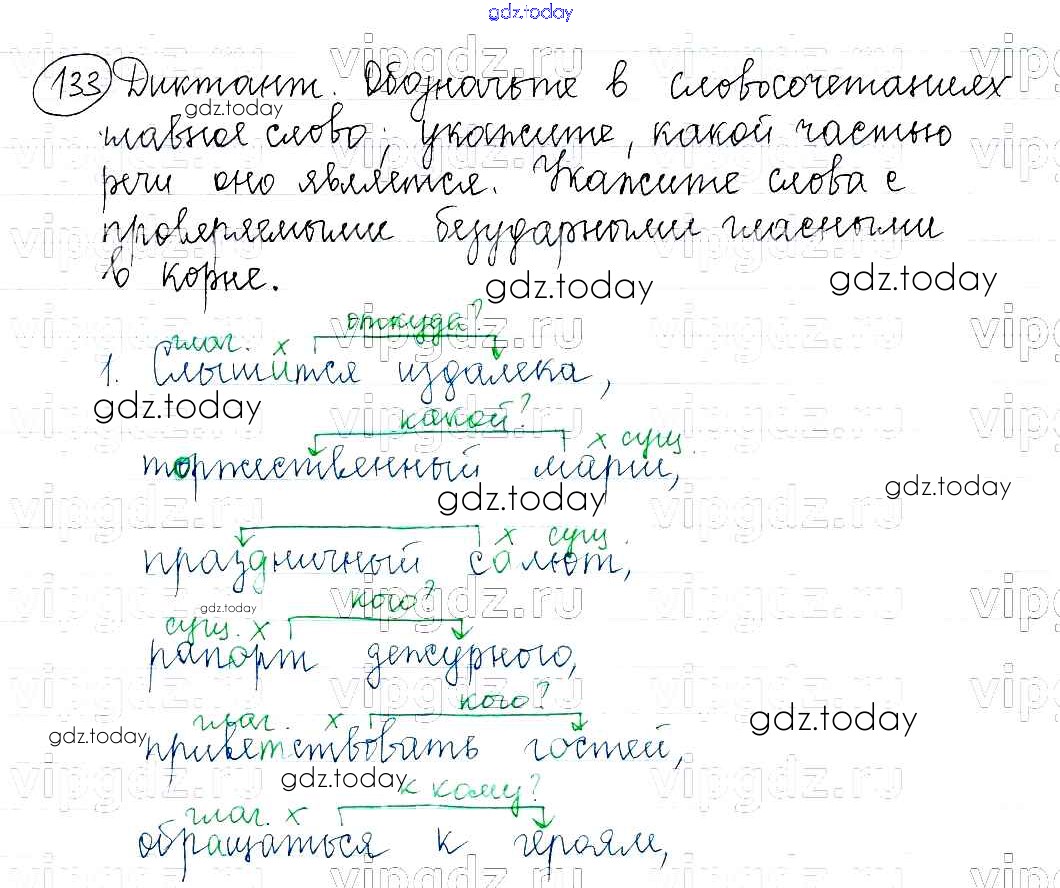 gdz.today
133 Диктант. Обозначьте в словосочетаниях
главное слово; укажите, какой частью
речи оно является. Укажите слова с
проверяемыми безударными гласными
в корне.
глаг. х откуда?
1. Слышится издалека,
какой? х сущ.
торжественный марш,
х сущ.
праздничный салют,
сущ. х кого?
рапорт дежурного,
глаг. х кого?
приветствовать гостей,
глаг. х к кому?
обращаться к героям,
gdz.today
gdz.today
gdz.today
gdz.today
gdz.today
gdz.today
gdz.today
gdz.today
gdz.today
gdz.today
vipgdz.ru